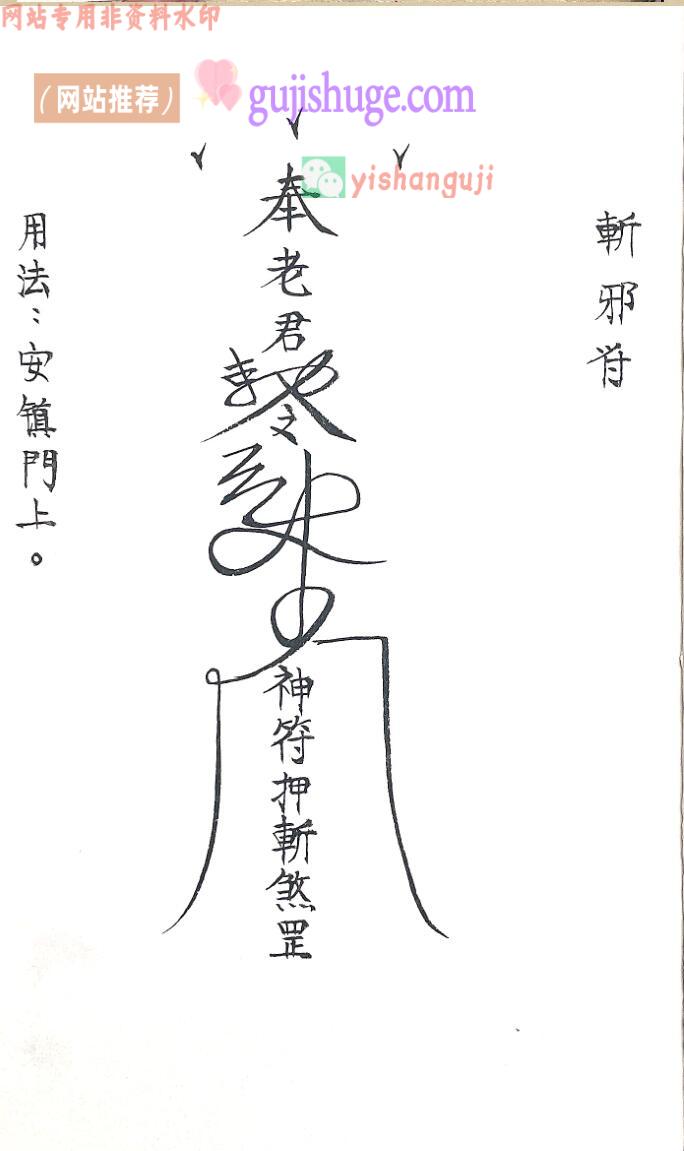 网站专用非资料水印
（网站推荐）
gujishuge.com
yishanguji
斬邪符
奉老君
神符押斬煞罡
用法：安镇門上。